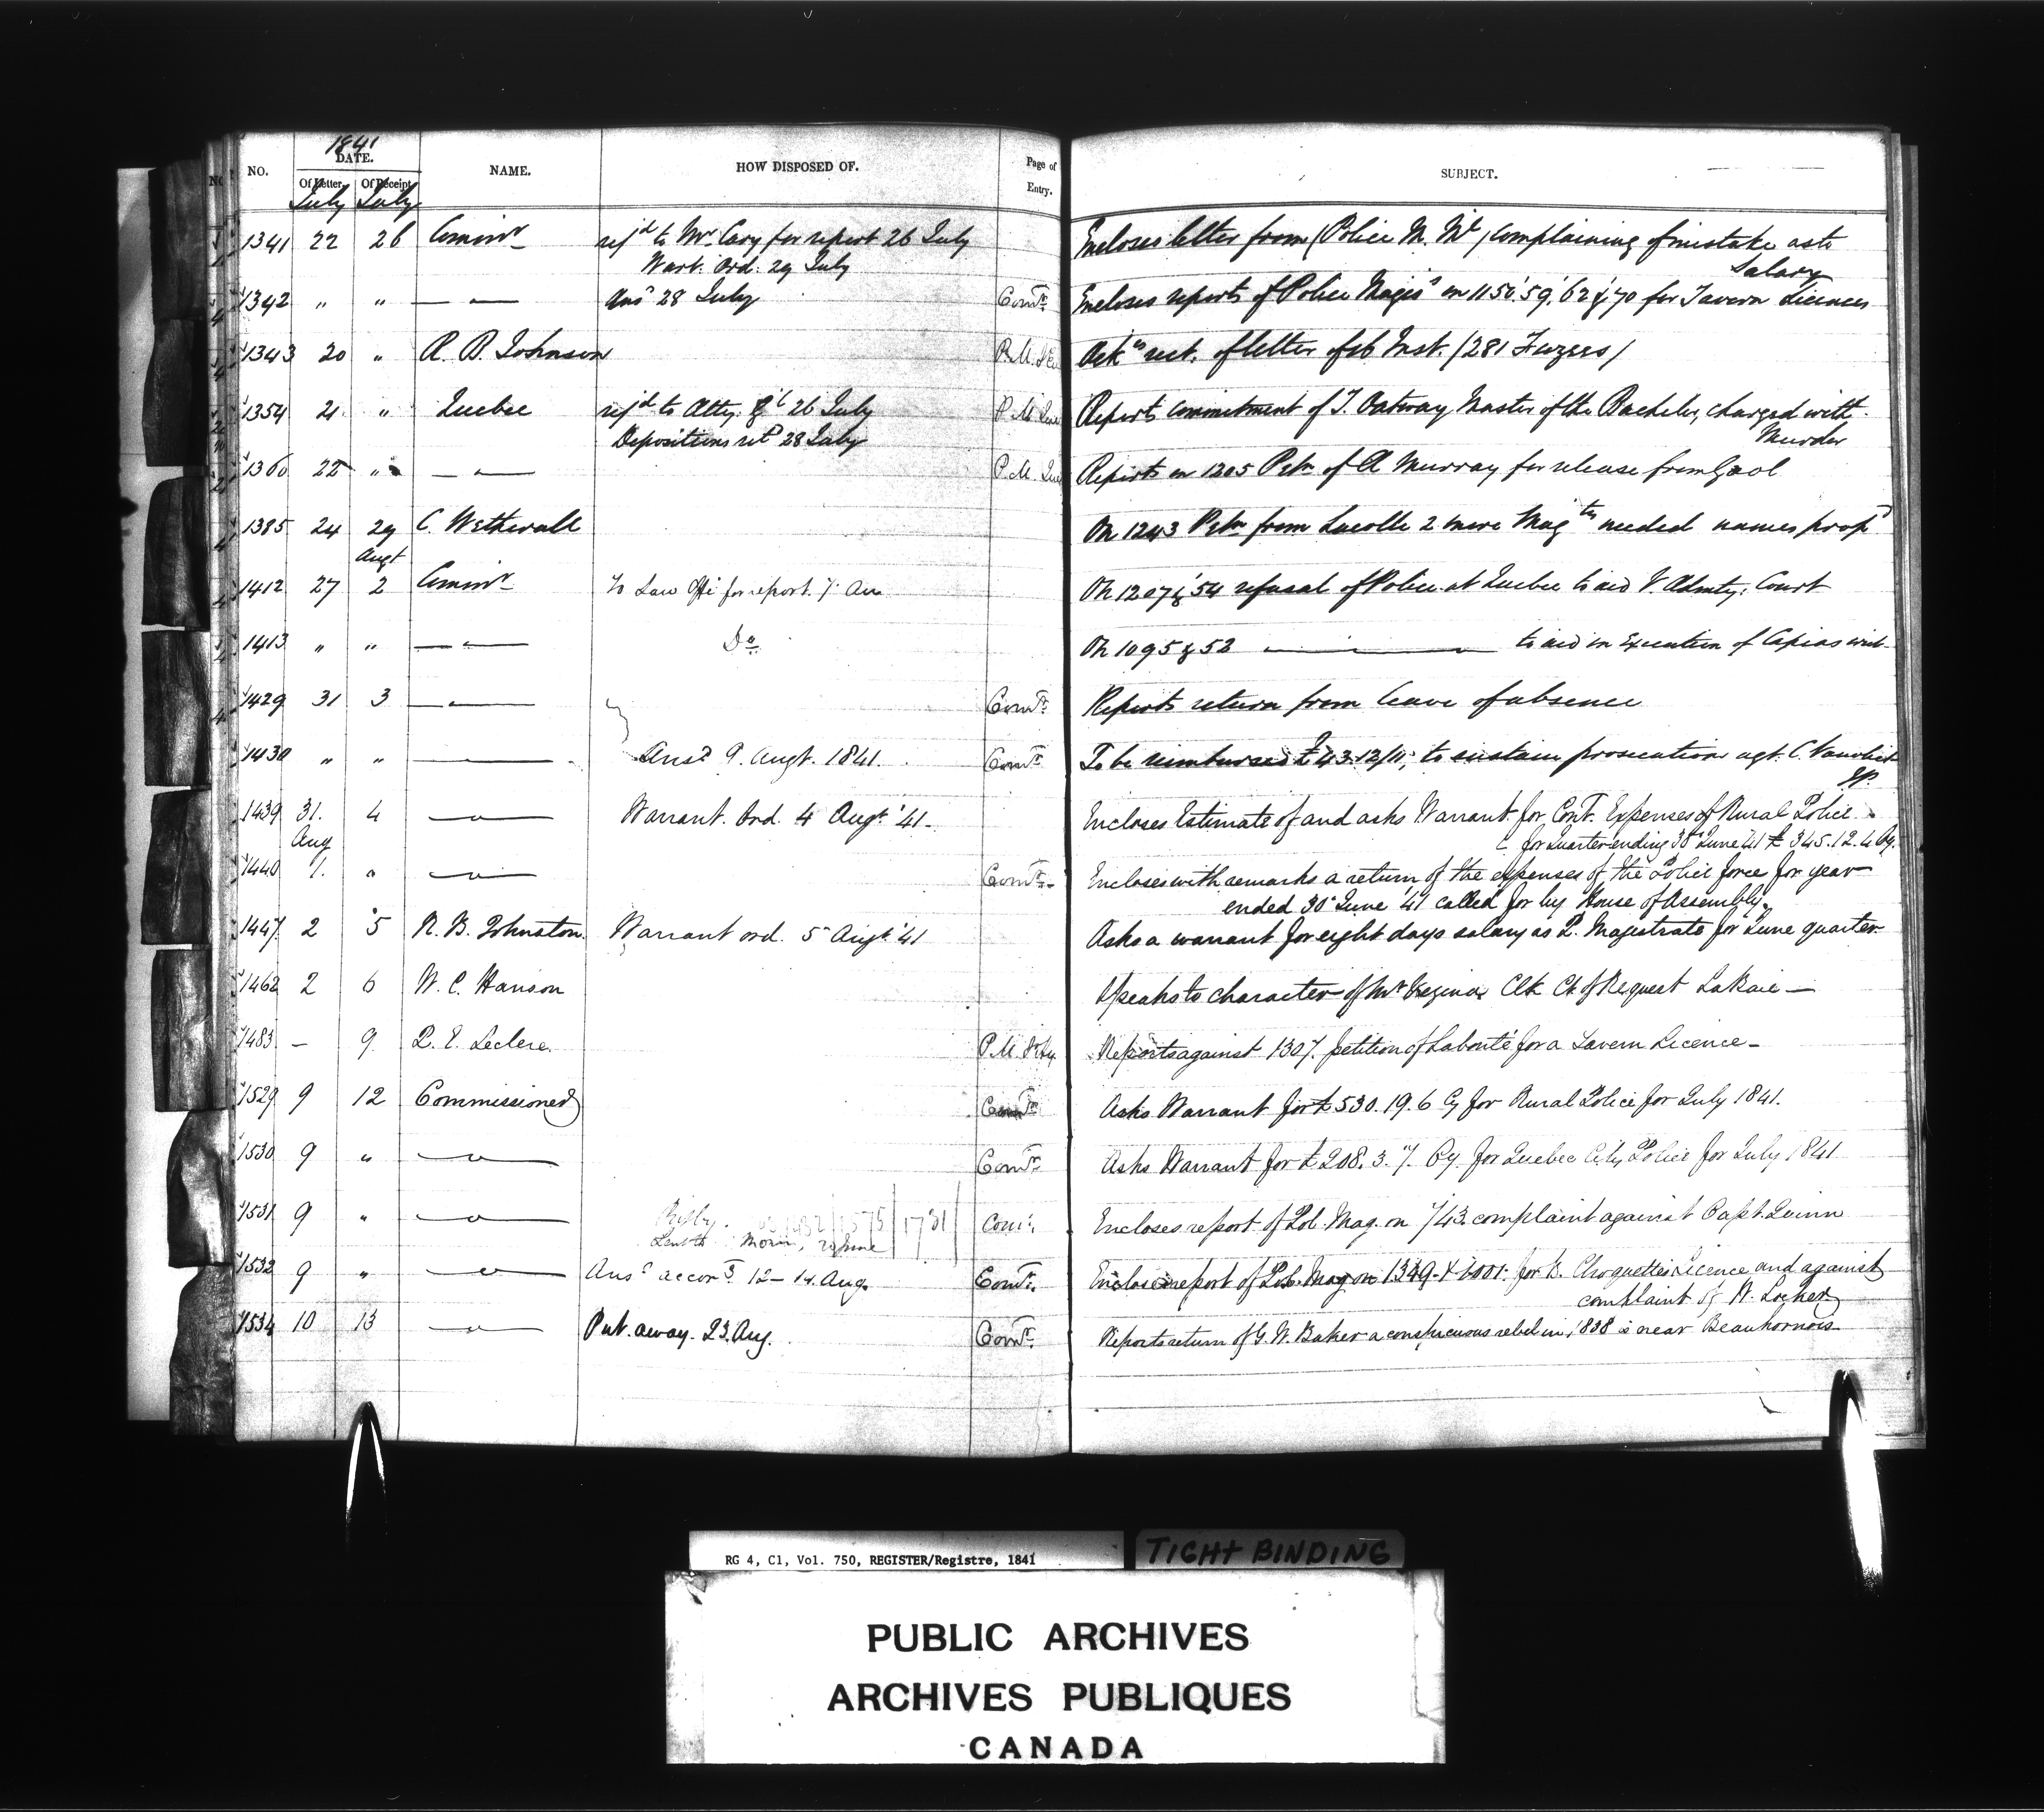 1841
NO. DATE. NAME. HOW DISPOSED OF. Page of Entry. SUBJECT.
Of Letter Of Receipt
July July
1341 22 26 Commr refd to Mr. Cary for report 26 July Encloses letter from (Police M. Ml) complaining of mistake as to
Warrt. Ord. 29 July Salary
1342 " " — " — Ansd 28 July Comr. Encloses reports of Police Magiss on 1150. 59, 62 & 70 for Tavern Licences
1343 20 " R. B. Johnson P.M. Ackn rect. of letter of 16 Inst. /281 /
1354 21 " Quebec refd to Atty. Gl 26 July P.M. Que Reports commitment of T. Oatway Master of the Bachelor, charged with
Depositions retd 28 July Murder
1360 22 " — " — P.M. Que Reports on 1205 Petn of A Murray for release from Gaol
1385 24 29 C. Wetherall On 1243 Petn from Lacolle 2 more Magtes needed names propd
Augt
1412 27 2 Commr To Law Offi for report 7 Au On 1207 & 54 refusal of Police at Quebec to aid V. Admty. Court
1413 " " — " — Do On 1095 & 52 — " — to aid in Execution of Capias writ
1429 31 3 — " — Comr. Reports return from leave of absence
1430 " " — " — Ansd 9. Augt. 1841. Comr. To be reimbursed £43.12/11, to sustain prosecution agt. C.
JP.
1439 31. 4 — " — Warrant. Ord. 4 Augt. '41. Encloses Estimate of and asks Warrant for Cont. Expenses of Rural Police
Aug for Quarter ending 30th June 41 £345.12.4 Cy.
1440 1. " — " — Comr. Encloses with remarks a return of the expenses of the Police force for year
ended 30th June '41 called for by House of Assembly.
1447. 2 5 R. B. Johnston. Warrant ord. 5 Augt. '41 Asks a warrant for eight days salary as P. Magistrate for June quarter
1462 2 6 W. C. Hanson Speaks to character of Mr. Vezina Clk Ct. of Request La Baie —
1483 – 9 P. E. Leclere. P.M. St. Hy. Reports against 1307. petition of Labonté for a Tavern Licence –
1529 9 12 Commissioner Comr. Asks Warrant for £530.19.6 Cy for Rural Police for July 1841.
1530 9 " — " — Comr. Asks Warrant for £208.3.7. Cy for Quebec City Police for July 1841
1531 9 " — " — 1575 1731 Comr. Encloses report of Pol. Mag. on 743 complaint against Capt. Quinn
1532 9 " — " — Ansd accorg. 12–14. Aug. Comr. Encloses report of Pol. Mag on 1349. & 1001. for B. Choquettes Licence and against
complaint of W. Locker
1534 10 13 — " — Put away. 23. Aug. Comr. Reports return of G. W. Baker a conspicuous rebel in 1838 is near Beauharnois
RG 4, C1, Vol. 750, REGISTER/Registre, 1841
TIGHT BINDING
PUBLIC ARCHIVES
ARCHIVES PUBLIQUES
CANADA